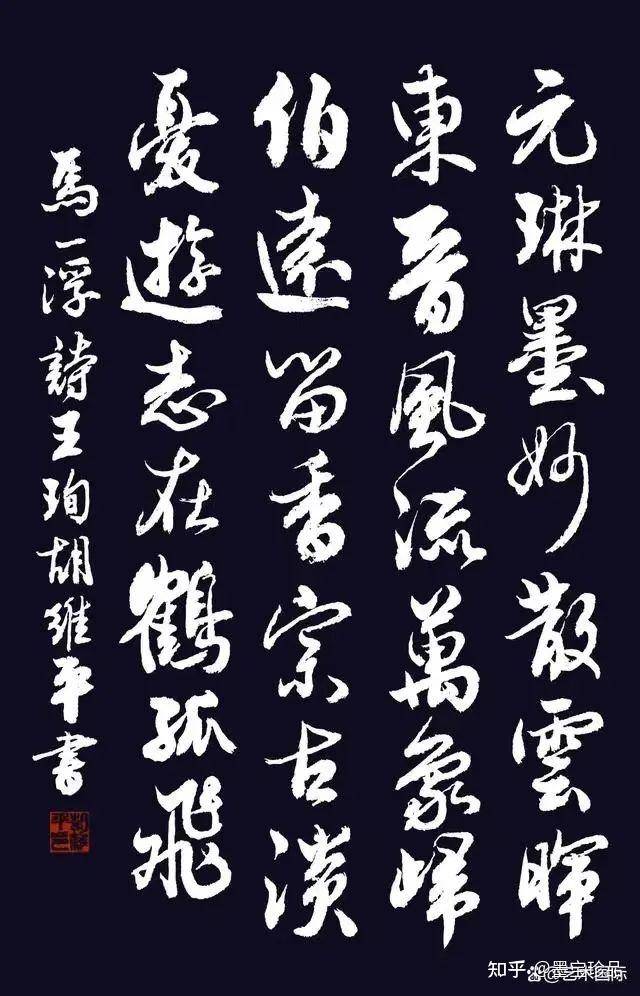 元琳墨妙散雲暉
東晉風流萬象歸
伯遠留香宗古淡
憂遊志在鶴孤飛
馬一浮詩王珣胡維平書
知乎 @墨宝珍品